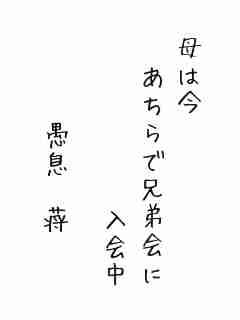 母は今
あちらで兄弟会に
入会中
愚息　蒋